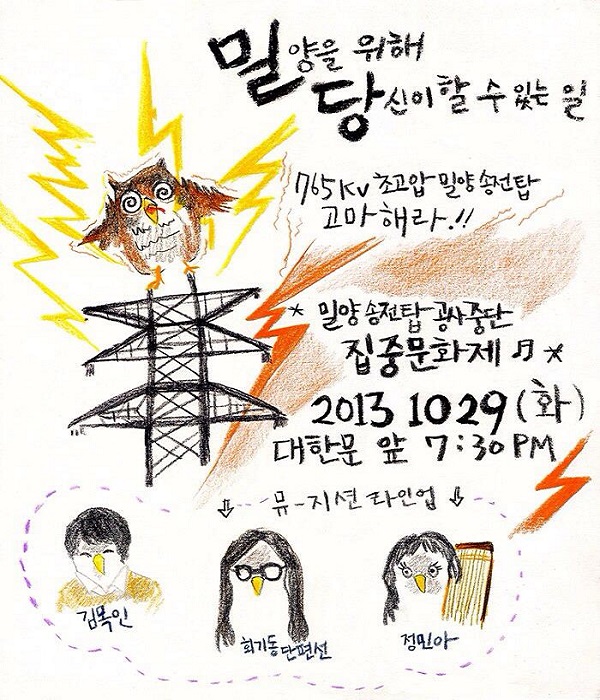 밀양을 위해
당신이 할 수 있는 일
765kv 초고압 밀양 송전탑
고마해라.!!
* 밀양 송전탑 공사중단
집중문화제 ♬ *
2013 10 29 (화)
대한문 앞 7:30 PM
뮤-지션 라인업
김목인
회기동 단편선
정민아